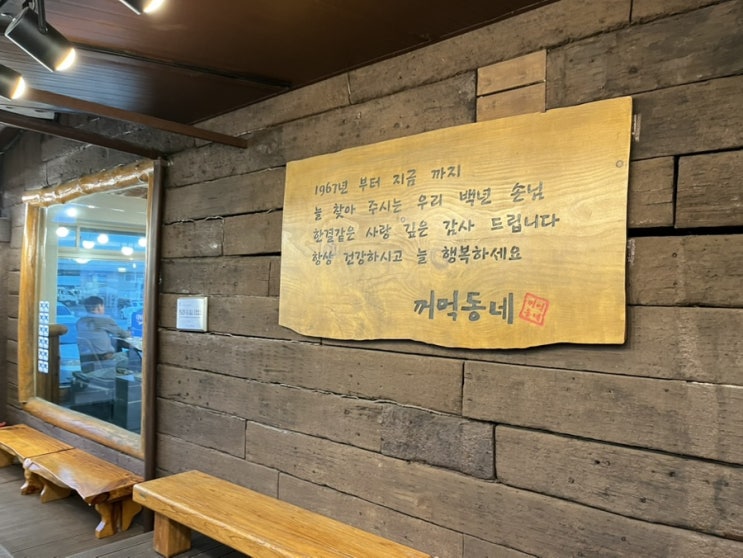 1967년 부터 지금 까지
늘 찾아 주시는 우리 백년 손님
한결같은 사랑 깊은 감사 드립니다
항상 건강하시고 늘 행복하세요
꺼먹동네
꺼먹
동네